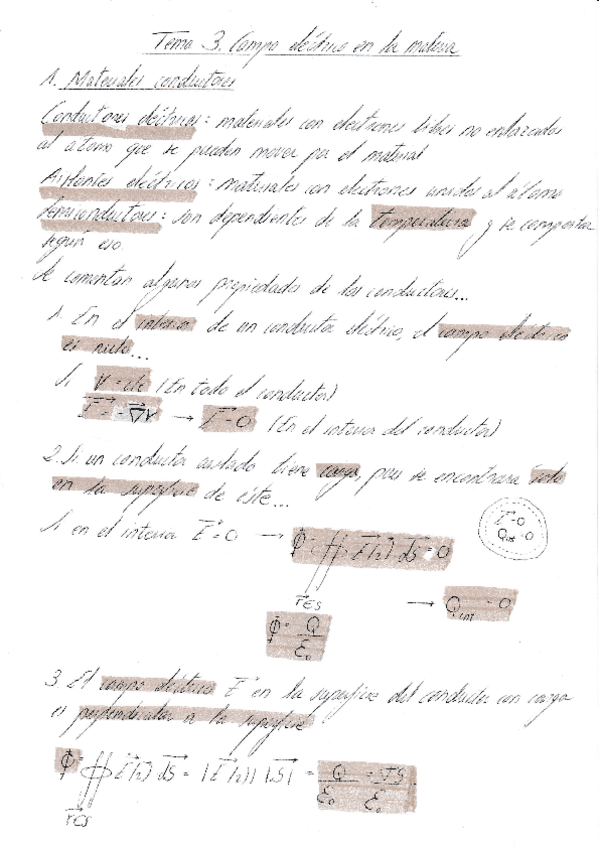 Tema 3. Campo eléctrico en la materia
1. Materiales conductores
Conductores eléctricos: materiales con electrones libres no enlazados
al átomo que se pueden mover por el material
Aislantes eléctricos: materiales con electrones unidos al átomo
Semiconductores: son dependientes de la temperatura y se comportan
según eso.
Se comentan algunas propiedades de los conductores...
1. En el interior de un conductor eléctrico, el campo eléctrico
es nulo...
Si V = cte (En todo el conductor)
E⃗ = -∇⃗V → E⃗ = 0 (En el interior del conductor)
2. Si un conductor aislado tiene carga, pues se encontrará solo
en la superficie de éste...
Si en el interior E⃗ = 0 → ϕ = ∯ E⃗(r⃗) dS⃗ = 0
E⃗=0
Qint=0
r⃗∈S
→ Qint = 0
ϕ = Q/ε₀
3. El campo eléctrico E⃗ en la superficie del conductor con carga
es perpendicular a la superficie
ϕ = ∯ E⃗(r⃗) dS⃗ = |E⃗(r)| |S⃗| = Q/ε₀ = σS/ε₀
r⃗∈S